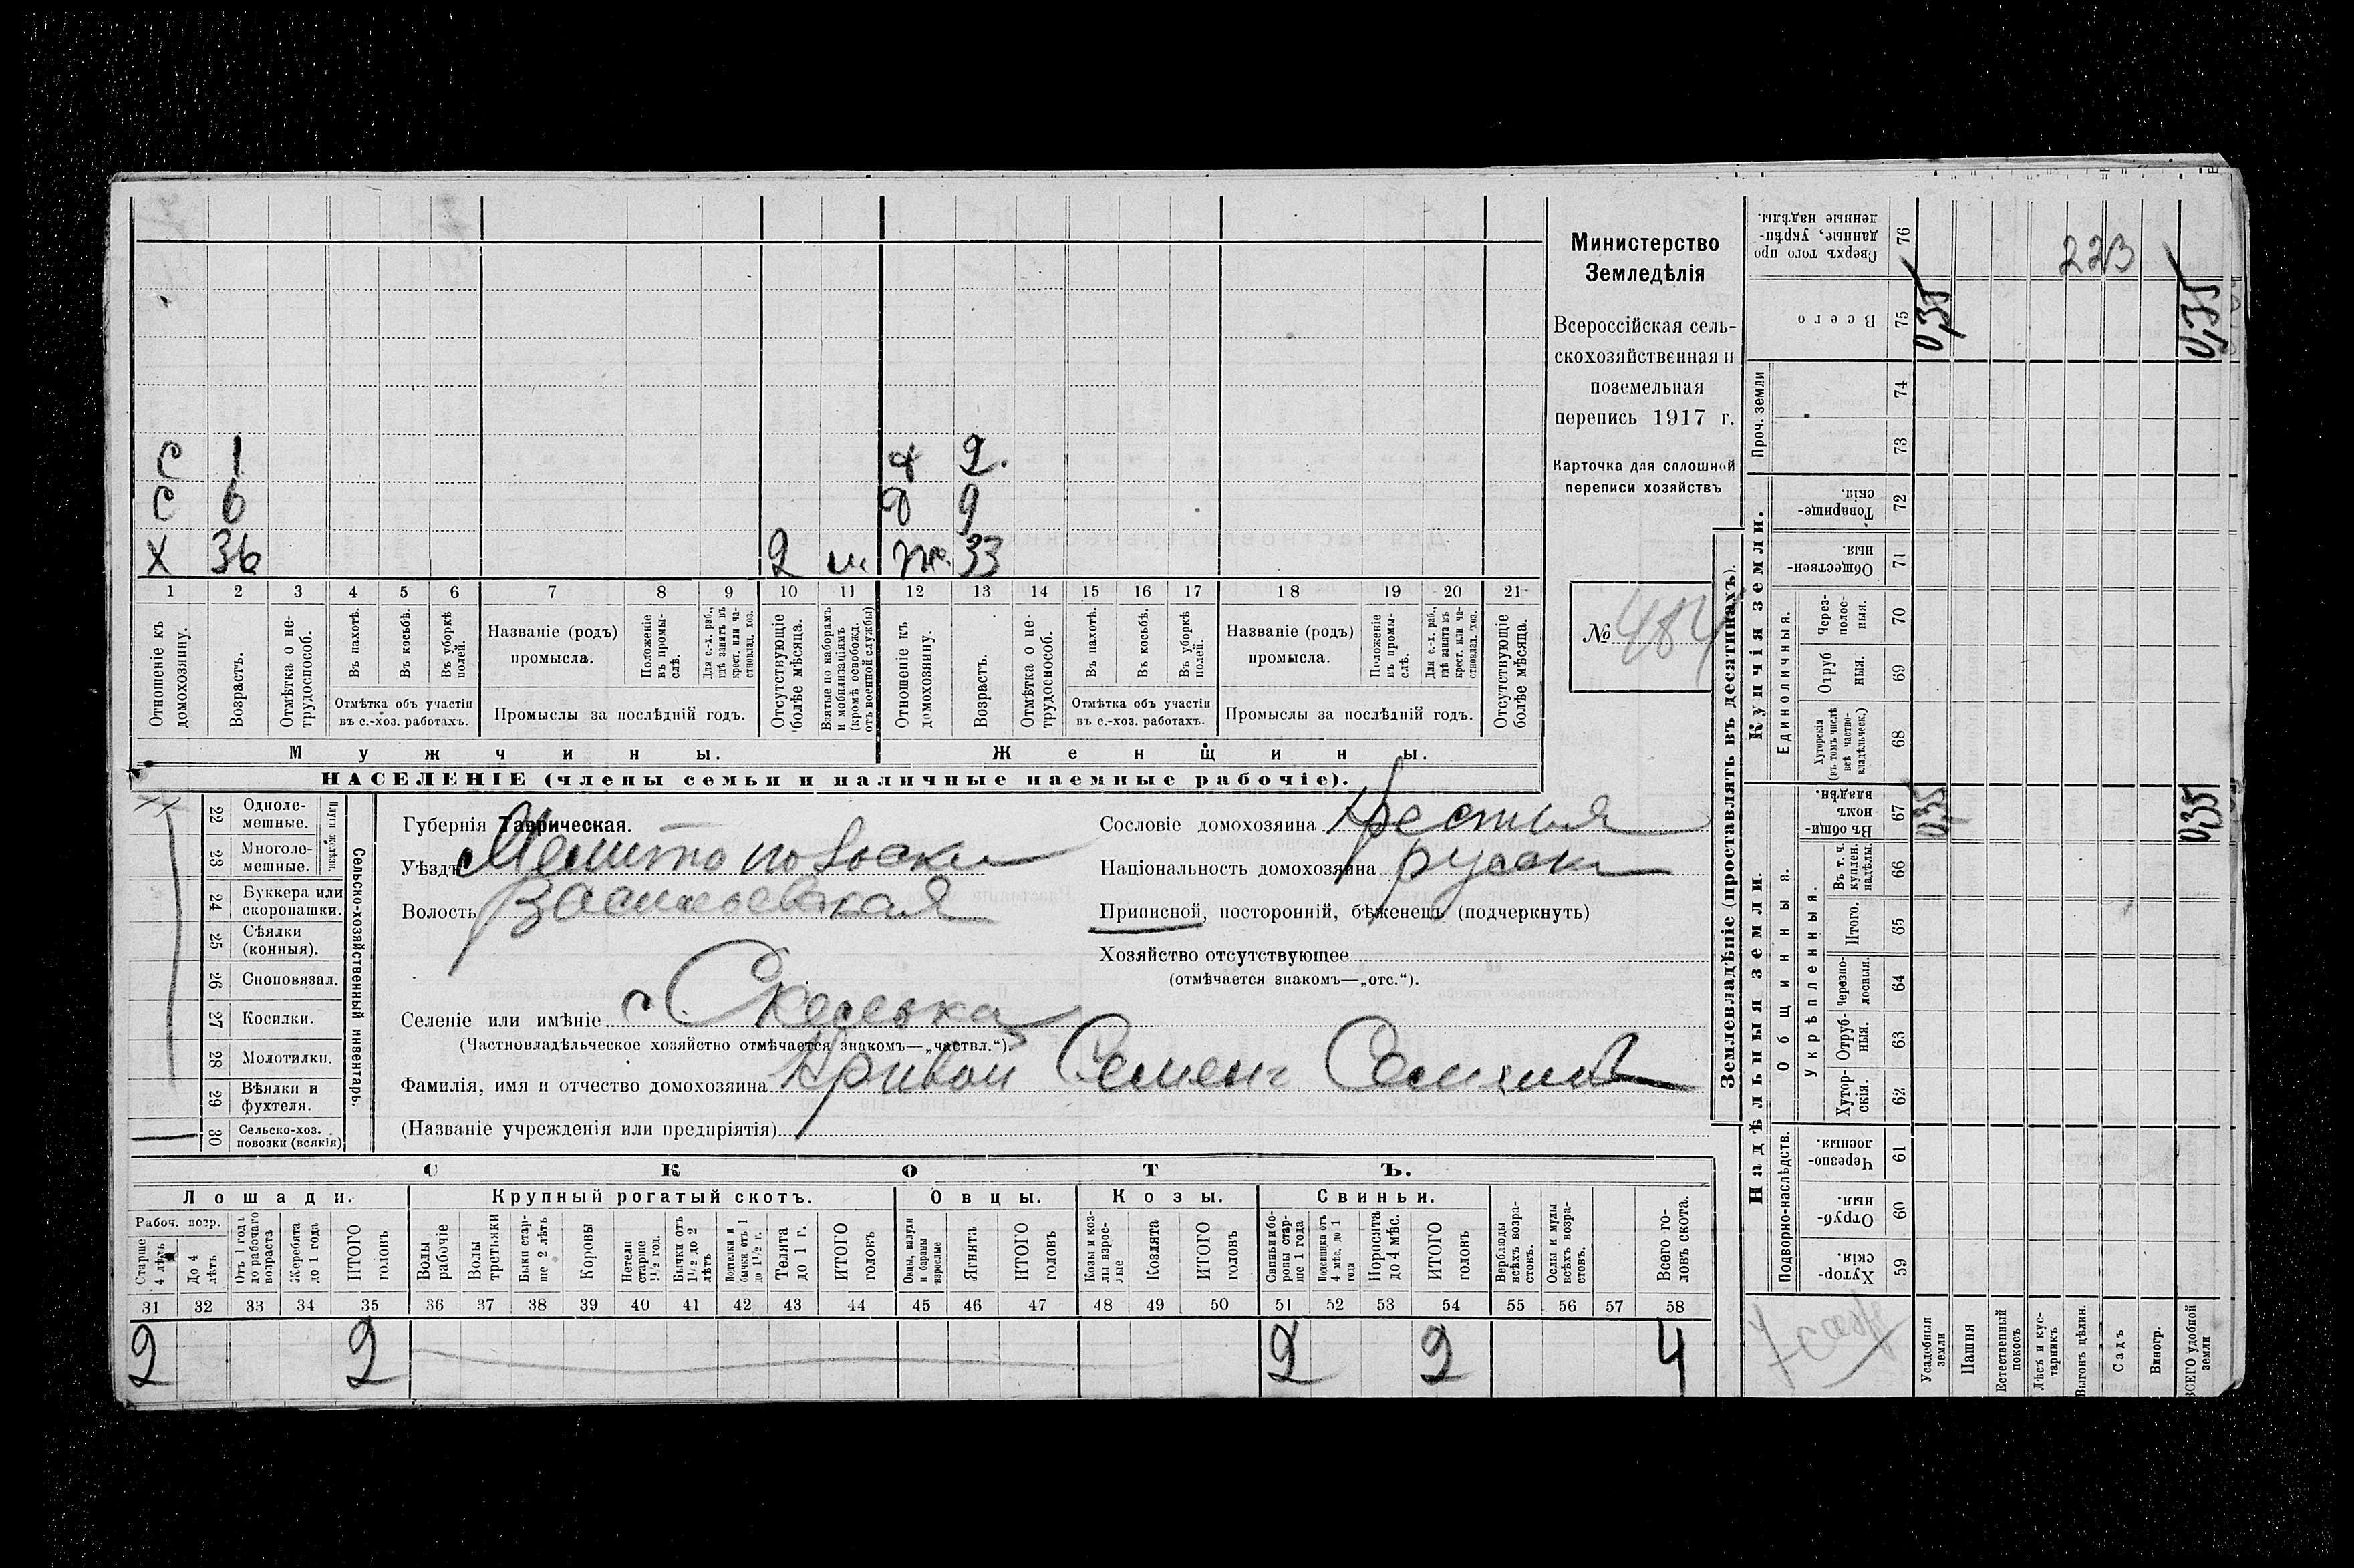 Министерство
Земледѣлія
Всероссійская сель-
скохозяйственная и
поземельная
перепись 1917 г.
Карточка для сплошной
переписи хозяйствъ
№ 484
С 1 д 2.
С 6 д 9
Х 36 2 м ж. 33
1 2 3 4 5 6 7 8 9 10 11 12 13 14 15 16 17 18 19 20 21
Отношеніе къ домохозяину.
Возрастъ.
Отмѣтка о не-трудоспособ.
Въ пахотѣ.
Въ косьбѣ.
Въ уборкѣ полей.
Отмѣтка объ участіи въ с.-хоз. работахъ.
Названіе (родъ) промысла.
Положеніе въ промы-слѣ.
Для с.-х. раб., гдѣ занятъ въ крест. или ча-стновлад. хоз.
Промыслы за послѣдній годъ.
Отсутствующіе болѣе мѣсяца.
Взятые по наборамъ и мобилизаціямъ (кромѣ освобожд. отъ военной службы)
Отношеніе къ домохозяину.
Возрастъ.
Отмѣтка о не-трудоспособ.
Въ пахотѣ.
Въ косьбѣ.
Въ уборкѣ полей.
Отмѣтка объ участіи въ с.-хоз. работахъ.
Названіе (родъ) промысла.
Положеніе въ промы-слѣ.
Для с.-х. раб., гдѣ занята въ крест. или ча-стновлад. хоз.
Промыслы за послѣдній годъ.
Отсутствующіе болѣе мѣсяца.
Мужчины. Женщины.
НАСЕЛЕНІЕ (члены семьи и наличные наемные рабочіе).
Сельско-хозяйственный инвентарь.
Плуги желѣзн.
22 Одноле-мешные.
23 Многоле-мешные.
24 Буккера или скоропашки.
25 Сѣялки (конныя).
26 Сноповязал.
27 Косилки.
28 Молотилки.
29 Вѣялки и фухтеля.
30 Сельско-хоз. повозки (всякія)
Губернія Таврическая.
Уѣздъ Мелитопольски
Волость Васильевская
Селеніе или имѣніе с Скелька
(Частновладѣльческое хозяйство отмѣчается знакомъ—„частвл.“).
Фамилія, имя и отчество домохозяина Кривой Семенъ
(Названіе учрежденія или предпріятія)
Сословіе домохозяина Крестья
Національность домохозяина руски
Приписной, посторонній, бѣженецъ (подчеркнуть)
Хозяйство отсутствующее
(отмѣчается знакомъ—„отс.“).
СКОТЪ.
Лошади. Крупный рогатый скотъ. Овцы. Козы. Свиньи.
Рабоч. возр.
Старше 4 лѣтъ
До 4 лѣтъ
Отъ 1 года до рабочаго возраста
Жеребята до 1 года
ИТОГО головъ
Волы рабочіе
Волы третьяки
Быки стар-ше 2 лѣтъ
Коровы
Нетели старше 1½ год.
Бычки отъ 1½ до 2 лѣтъ
Подтелки и бычки отъ 1 до 1½ г.
Телята до 1 г.
ИТОГО головъ
Овцы, валухи и бараны взрослые
Ягнята
ИТОГО головъ
Козы и коз-лы взрос-лые
Козлята
ИТОГО головъ
Свиньи и бо-ровы стар-ше 1 года
Подсвинки отъ 4 мѣс. до 1 года
Поросята до 4 мѣс.
ИТОГО головъ
Верблюды всѣхъ возра-стовъ.
Ослы и мулы всѣхъ возра-стовъ.
Всего го-ловъ скота.
31 32 33 34 35 36 37 38 39 40 41 42 43 44 45 46 47 48 49 50 51 52 53 54 55 56 57 58
2 2 2 2 4
Землевладѣніе (проставлять въ десятинахъ).
Надѣльныя земли. Купчія земли. Проч. земли
Подворно-наслѣдств.
Общинныя.
Укрѣпленныя.
Единоличныя.
Сверхъ того про-данные, укрѣп-ленные надѣлы. 76
Всего 75 0,35 0,35
74
73
Товарище-скія. 72
Обществен-ныя. 71
Через-полос-ныя. 70
Отруб ныя. 69
Хуторскія (въ томъ числѣ всѣ частно-владѣльческ.) 68
Въ общи-номъ владѣн. 67 0,35 0,35
Въ т. ч. куплен. надѣлы. 66
Итого. 65
Черезпо-лосныя. 64
Отруб-ныя. 63
Хутор-скія. 62
Черезпо-лосныя. 61
Отруб-ныя. 60
Хутор-скія. 59
223
Усадебныя земли
Пашня
Естественный покосъ
Лѣсъ и кус-тарникъ
Выгонъ цѣлин.
Садъ
Виногр.
ВСЕГО удобной земли